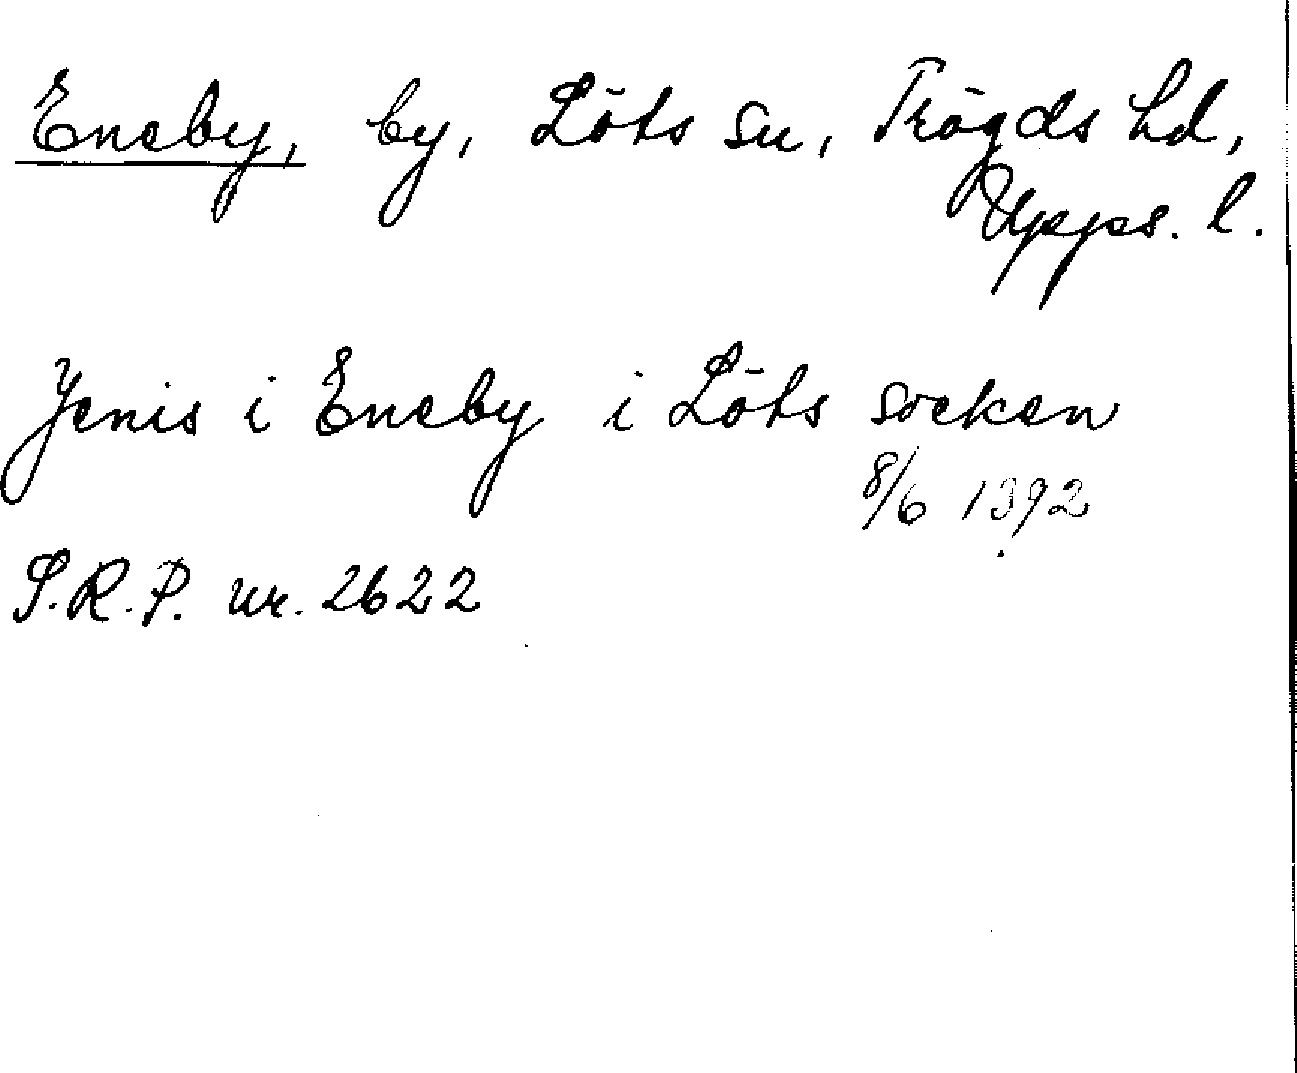 Eneby, by, Löts sn, Trögds hd,
Upps. l.
Jenis i Eneby i Löts socken
8/6 1392
S.R.P. nr. 2622